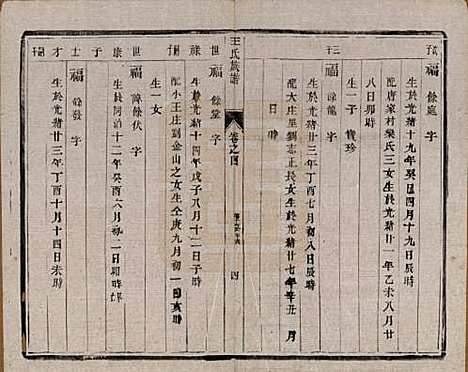 福 餘庭 字
生於光緒十九年癸巳四月十九日辰時
配唐家村梁氏三女生於光緒廿一年乙未八月廿
八日卯時
生一子 寶珍
三 福 餘龍 字
生於光緒廿三年丁酉七月初八日辰時
配大庄劉志正長女生於光緒廿七年辛丑 月
日 時
王氏族譜
卷之四
四
福 餘堂 字
生於光緒十四年戊子八月十二日子時
配小王庄劉金山之女生仝庚九月初一日亥時
生一女
世 福 餘伏 字
生於同治十二年癸酉八月初二日卯時
康 子 士 福 餘發 字
生於光緒廿三年丁酉十月十四日未時
才